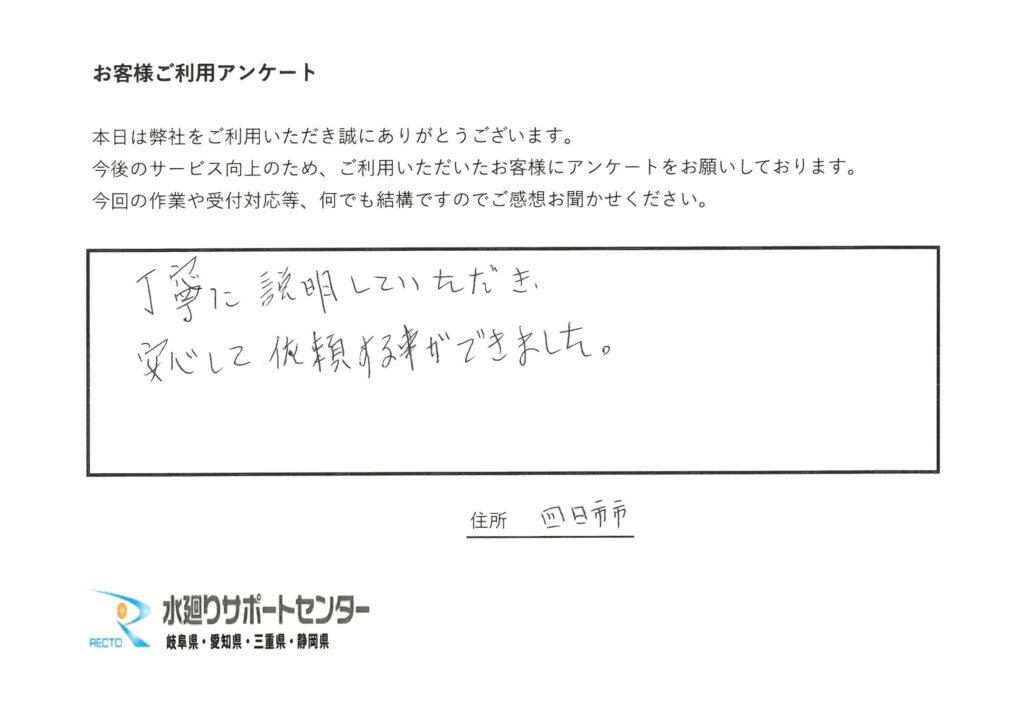 お客様ご利用アンケート
本日は弊社をご利用いただき誠にありがとうございます。
今後のサービス向上のため、ご利用いただいたお客様にアンケートをお願いしております。
今回の作業や受付対応等、何でも結構ですのでご感想お聞かせください。
丁寧に説明していただき、
安心して依頼する事ができました。
住所 四日市市
RECTO 水廻りサポートセンター
岐阜県・愛知県・三重県・静岡県